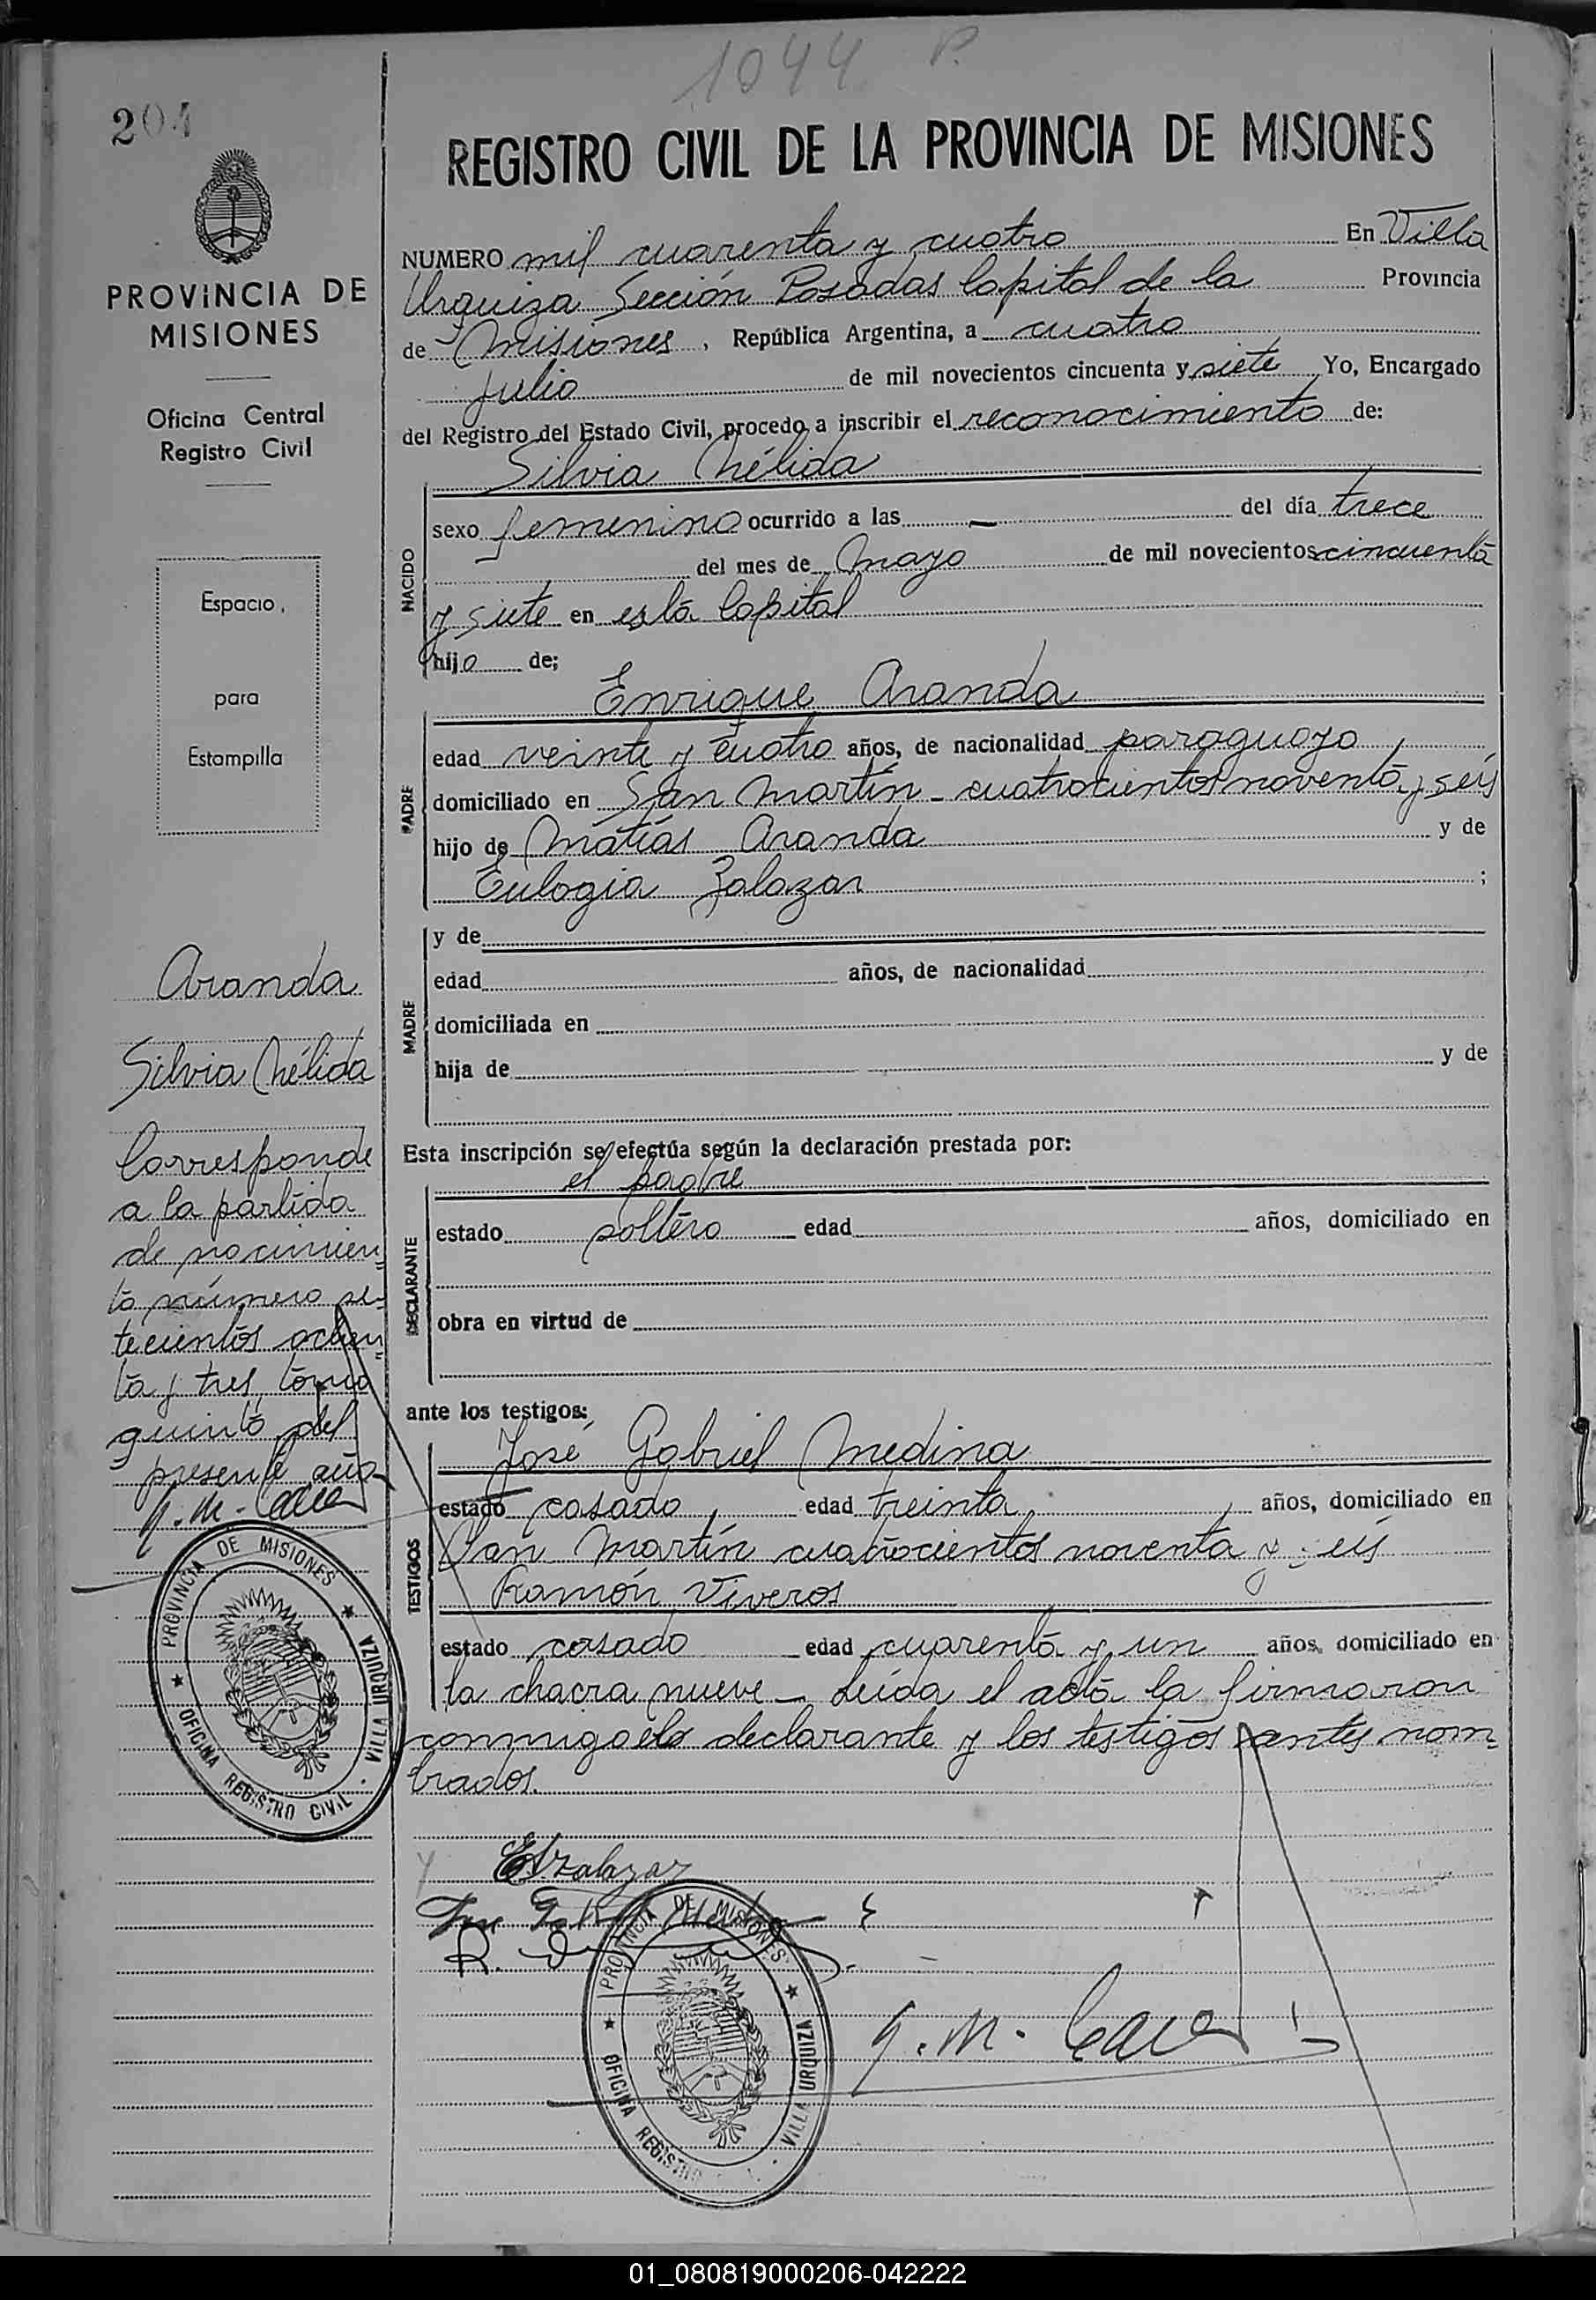 1044 P.
204
REGISTRO CIVIL DE LA PROVINCIA DE MISIONES
PROVINCIA DE
MISIONES
Oficina Central
Registro Civil
Espacio,
para
Estampilla
Aranda
Silvia Nélida
Corresponde
a la partida
de nacimien
to número se-
tecientos ochen
ta y tres, tomo
quinto del
presente año
PROVINCIA DE MISIONES ★ VILLA URQUIZA · OFICINA REGISTRO CIVIL ★
NUMERO mil cuarenta y cuatro En Villa
Urquiza Sección Posadas Capital de la Provincia
de Misiones, República Argentina, a cuatro
julio de mil novecientos cincuenta y siete Yo, Encargado
del Registro del Estado Civil, procedo a inscribir el reconocimiento de:
Silvia Nélida
NACIDO
sexo femenino ocurrido a las — del día trece
del mes de Mayo de mil novecientos cincuenta
y siete en esta Capital
hijo de;
Enrique Aranda
PADRE
edad veinte y cuatro años, de nacionalidad paraguayo,
domiciliado en San Martín - cuatrocientos noventa y seis
hijo de Matías Aranda y de
Eulogia Zalazar ;
MADRE
y de
edad años, de nacionalidad
domiciliada en
hija de y de
Esta inscripción se efectúa según la declaración prestada por:
el padre
DECLARANTE
estado soltero edad años, domiciliado en
obra en virtud de
ante los testigos:
José Gabriel Medina
TESTIGOS
estado casado, edad treinta, años, domiciliado en
San Martín cuatrocientos noventa y seis
Ramón Viveros
estado casado edad cuarenta y un años, domiciliado en
la chacra nueve - Leída el acta la firmaron
conmigo el declarante y los testigos antes nom-
brados.
PROVINCIA DE MISIONES ★ VILLA URQUIZA · OFICINA REGISTRO ★
01_080819000206-042222